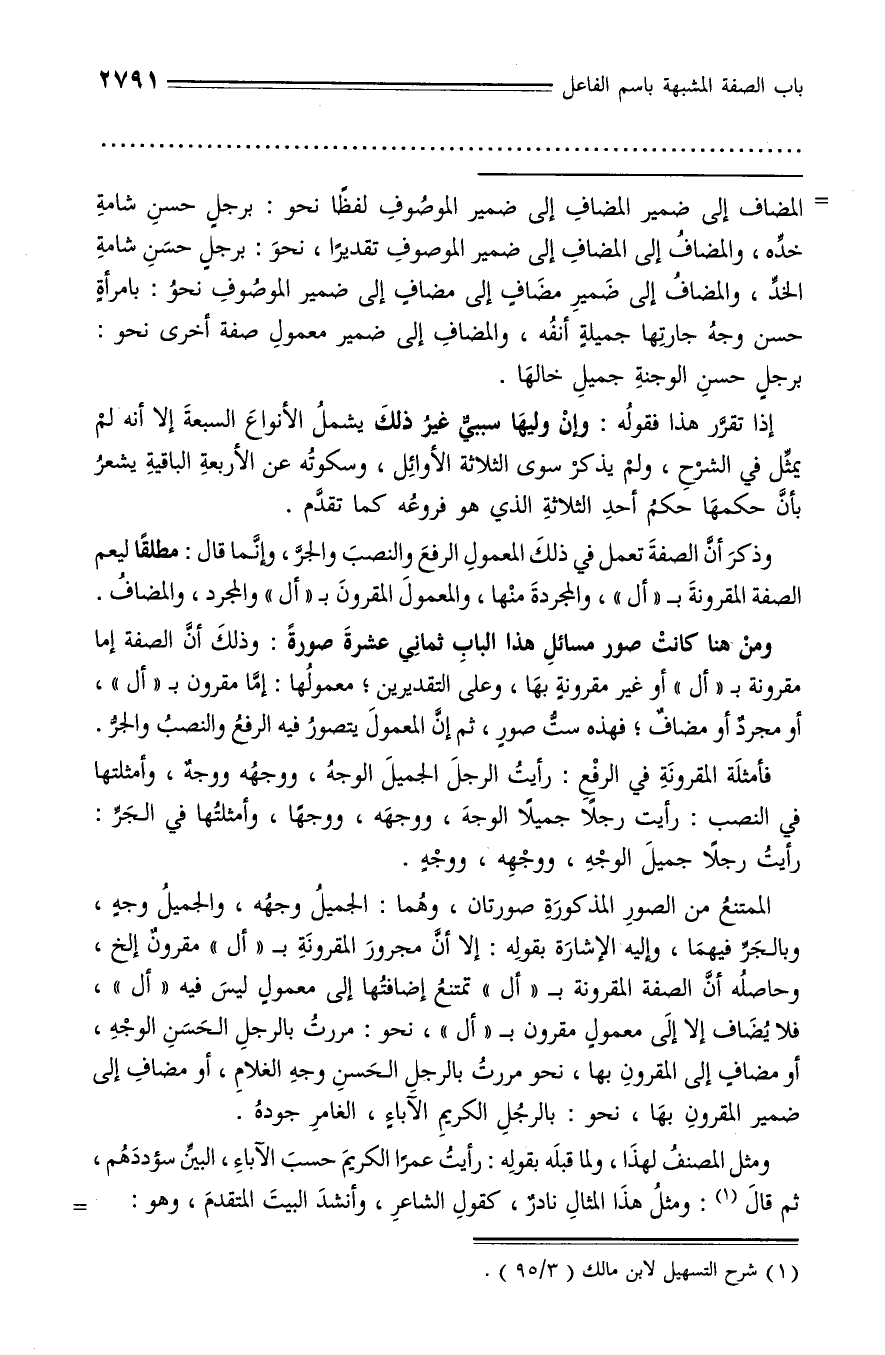 باب الصفة المشبهة باسم الفاعل ٢٧٩١
= المضاف إلى ضمير المضافِ إلى ضمير الموصُوفِ لفظًا نحو : برجلٍ حسنِ شامةِ
خدِّه ، والمضافُ إلى المضافِ إلى ضمير الموصوفِ تقديرًا ، نحوَ : برجلٍ حسَنِ شامةِ
الخدِّ ، والمضافُ إلى ضَميرِ مضَافٍ إلى مضافٍ إلى ضمير الموصُوفِ نحوُ : بامرأةٍ
حسن وجهُ جارتِها جميلةٍ أنفُه ، والمضافِ إلى ضمير معمولِ صفة أخرى نحو :
برجلٍ حسنِ الوجنةِ جميلِ خالهَا .
إذا تقرَّر هذا فقولُه : وإنْ وليهَا سببيٌّ غيرُ ذلكَ يشملُ الأنواعَ السبعةَ إلا أنه لمْ
يمثِّل في الشرْحِ ، ولمْ يذكرْ سوى الثلاثة الأوائِل ، وسكوتُه عن الأربعةِ الباقيةِ يشعرُ
بأنَّ حكمهَا حكمُ أحدِ الثلاثةِ الذي هو فروعُه كما تقدَّم .
وذكرَ أنَّ الصفةَ تعمل في ذلكَ المعمولِ الرفعَ والنصبَ والجرَّ ، وإنَّما قال : مطلقًا ليعم
الصفة المقرونةَ بـ « أل » ، والمجردةَ منْها ، والمعمولَ المقرونَ بـ « أل » والمجرد ، والمضافُ .
ومنْ هنا كانتْ صور مسائلِ هذا البابِ ثماني عشرةَ صورةً : وذلكَ أنَّ الصفة إما
مقرونة بـ « أل » أو غير مقرونةٍ بهَا ، وعلى التقديرين ؛ معمولُها : إمَّا مقرون بـ « أل » ،
أو مجردٌ أو مضافٌ ؛ فهذه ستُّ صورٍ ، ثم إنَّ المعمولَ يتصورُ فيه الرفعُ والنصبُ والجرُّ .
فأمثلَة المقرونَةِ في الرفْعِ : رأيتُ الرجلَ الجميلَ الوجهُ ، ووجهُه ووجهٌ ، وأمثلتها
في النصب : رأيت رجلًا جميلًا الوجهَ ، ووجهَه ، ووجهًا ، وأمثلتُها في الـجَرِّ :
رأيتُ رجلًا جميلَ الوجْهِ ، ووجْهِه ، ووجْهٍ .
الممتنعُ من الصورِ المذكورَةِ صورتان ، وهُما : الجميلُ وجهُه ، والجميلُ وجهٍ ،
وبالـجَرِّ فيهمَا ، وإليه الإشارَة بقولِه : إلا أنَّ مجرورَ المقرونَةِ بـ « أل » مقرونٌ إلخ ،
وحاصلُه أنَّ الصفة المقرونة بـ « أل » تمتنعُ إضافتُها إلى معمولٍ ليسَ فيه « أل » ،
فلا يُضَاف إلا إلَى معمولٍ مقرون بـ « أل » ، نحو : مررتُ بالرجلِ الـحَسَنِ الوجْهِ ،
أو مضافٍ إلى المقرونِ بها ، نحو مررتُ بالرجلِ الـحَسنِ وجهِ الغلامِ ، أو مضافِ إلى
ضمير المقرونِ بهَا ، نحو : بالرجُلِ الكريمِ الآباءِ ، الغامرِ جودهُ .
ومثل المصنفُ لهذَا ، ولما قبلَه بقولِه : رأيتُ عمرًا الكريمَ حسبَ الآباءِ ، البيِّنُ سؤددَهُم ،
ثم قالَ (١) : ومثلُ هذَا المثالِ نادرٌ ، كقولِ الشاعرِ ، وأنشدَ البيتَ المتقدمَ ، وهو : =
(١) شرح التسهيل لابن مالك ( ٩٥/٣ ) .